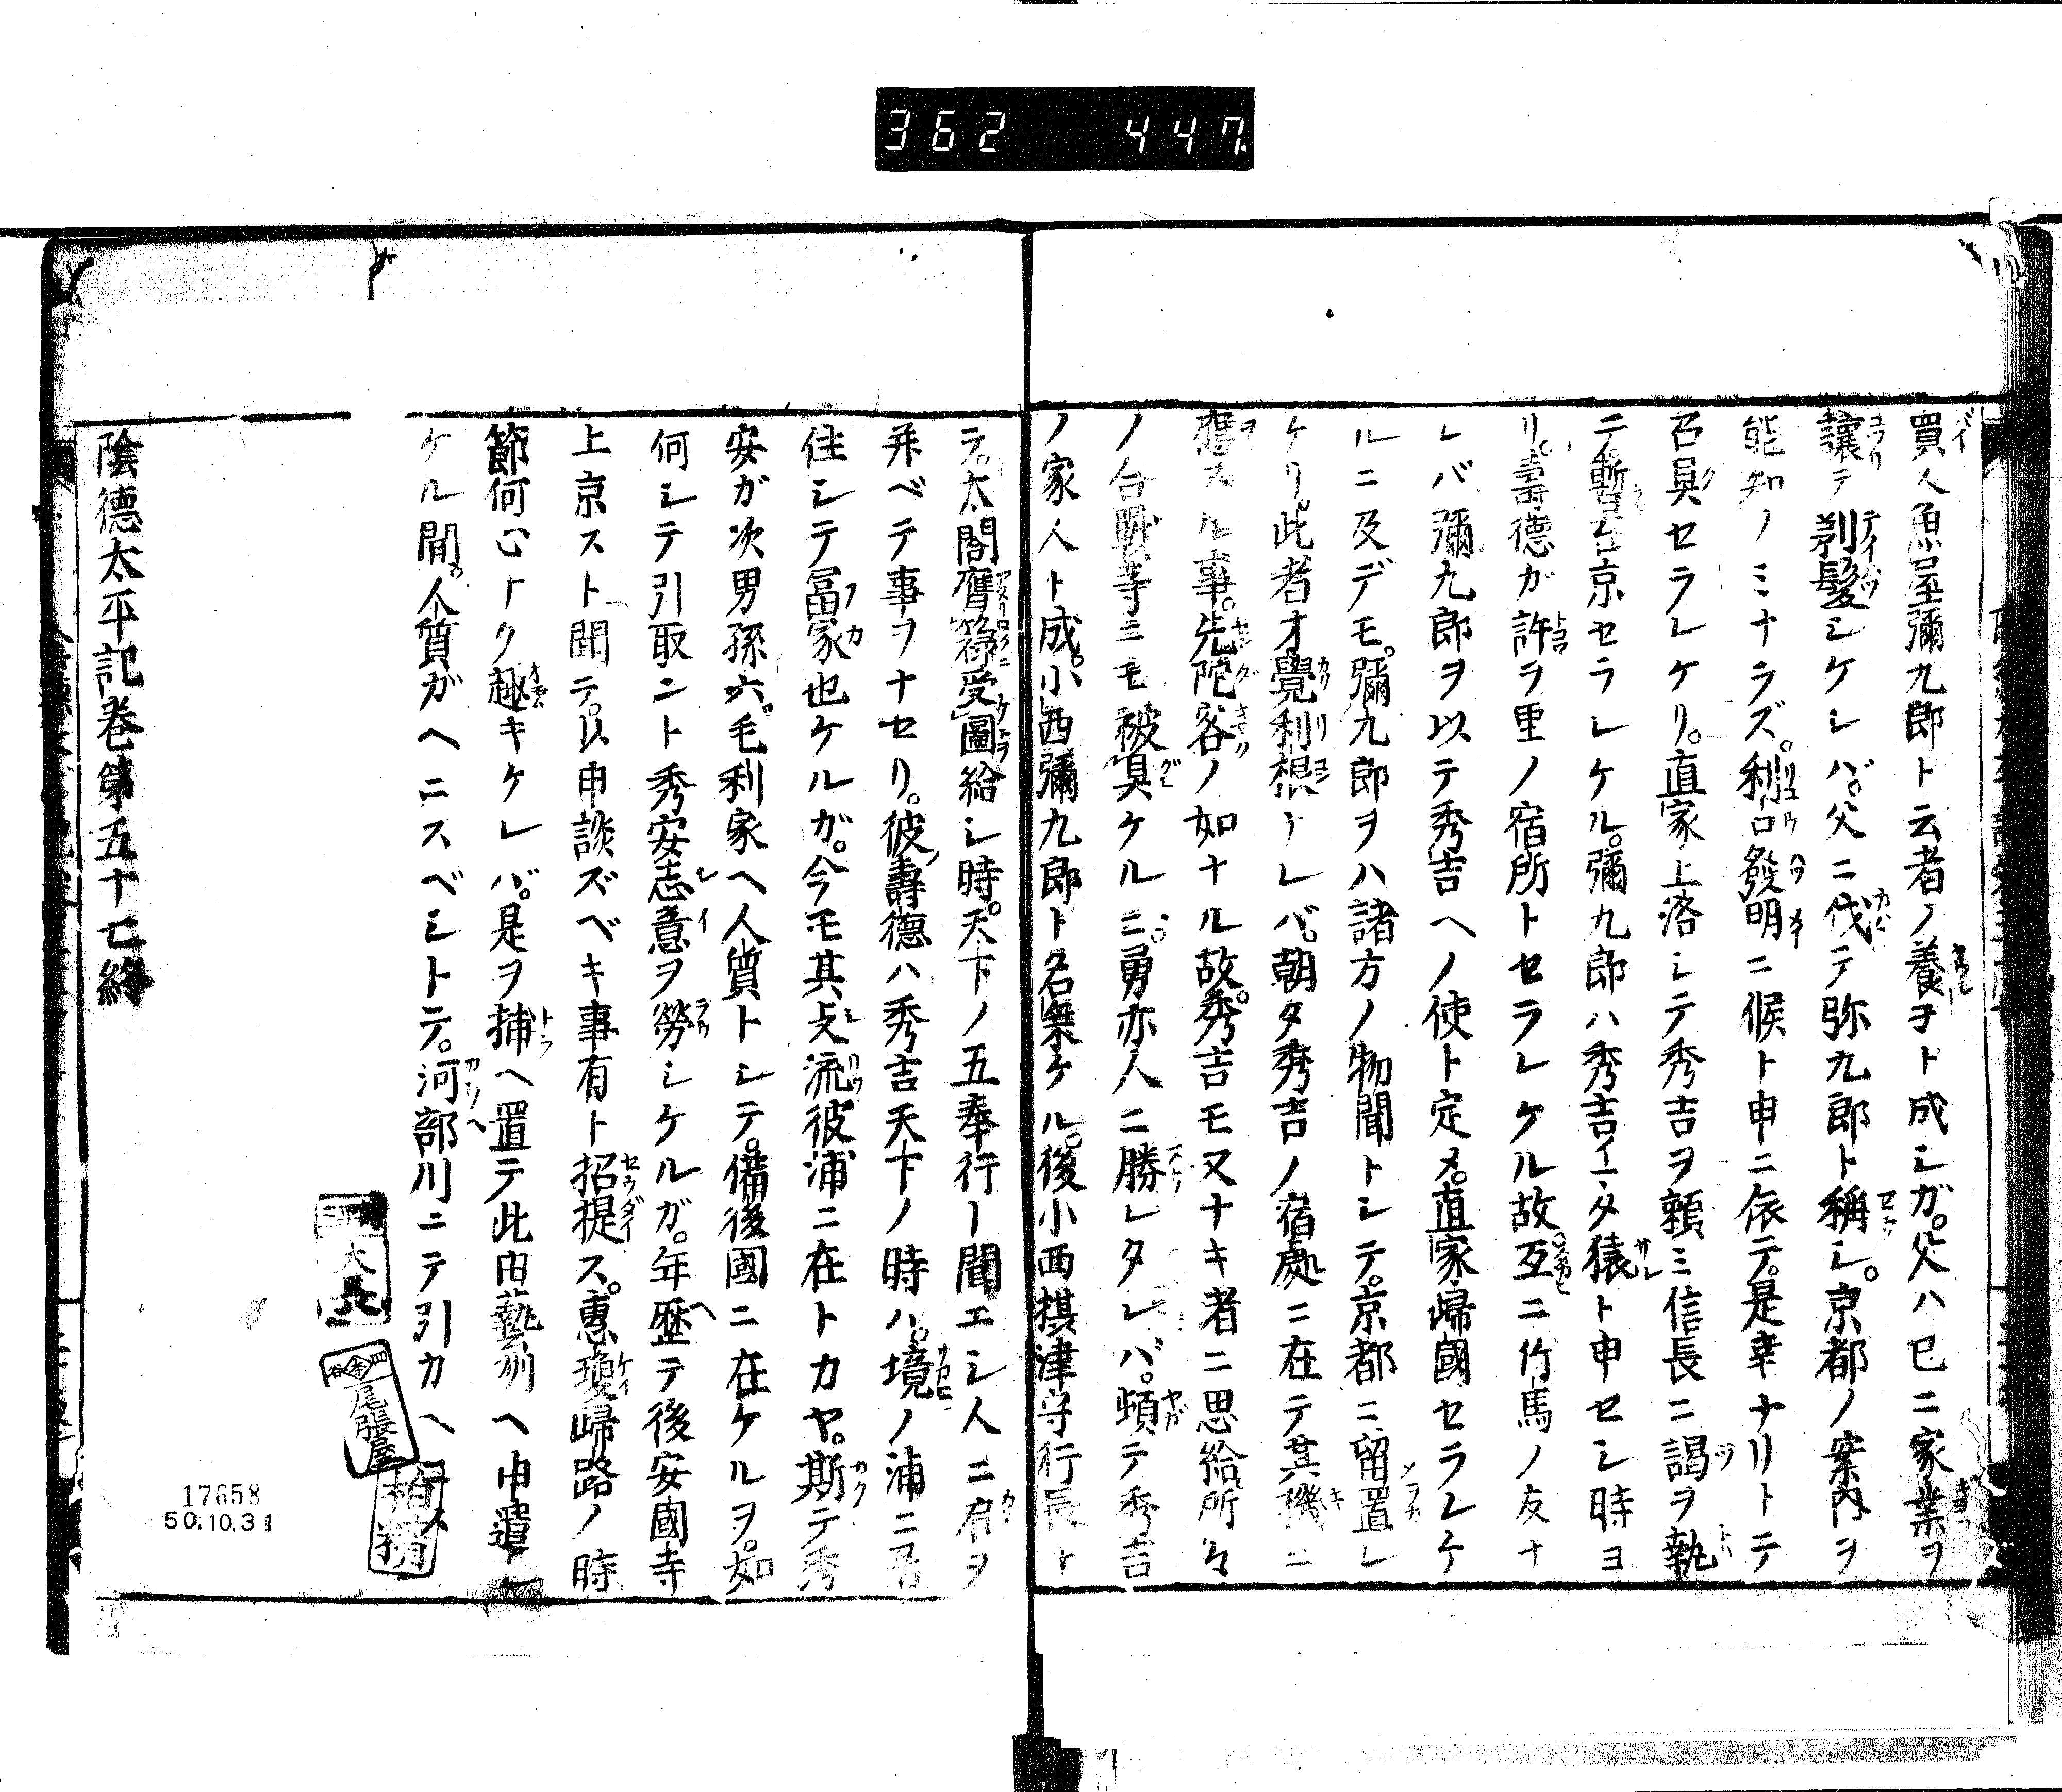 362 447.
買人魚屋彌九郎ト云者ノ養子ト成シガ。父ハ已ニ家業ヲ
讓テ剃髪シケレバ。父ニ代テ弥九郎ト稱シ。京都ノ案內ヲ
能知ノミナラズ。利口發明ニ候ト申ニ依テ。是幸ナリトテ
召具セラレケリ。直家上洛シテ秀吉ヲ頼ミ信長ニ謁ヲ執
テ。暫在京セラレケル。彌九郎ハ秀吉イマタ猿ト申セシ時ヨ
リ。壽德ガ許ヲ里ノ宿所トセラレケル故互ニ竹馬ノ友ナ
レバ彌九郎ヲ以テ秀吉ヘノ使ト定メ。直家歸國セラレケ
ルニ及デモ。彌九郎ヲハ諸方ノ物聞トシテ。京都ニ留置レ
ケリ。此者才覺利根ナレバ。朝夕秀吉ノ宿處ニ在テ其機ニ
應スル事。先陀客ノ如ナル故。秀吉モ又ナキ者ニ思給。所々
ノ合戰等ニモ被具ケルニ。勇亦人ニ勝レタレバ。頓テ秀吉
ノ家人ト成。小西彌九郎ト名乗ケル。後小西摂津守行長ト
テ。太閤膺籙受圖給シ時。天下ノ五奉行ト聞エシ人ニ肩ヲ
并ベテ事ヲナセリ。彼壽德ハ秀吉天下ノ時ハ。境ノ浦ニ居
住シテ冨家也ケルガ。今モ其支流彼浦ニ在トカヤ。斯テ秀
安ガ次男孫六。毛利家ヘ人質トシテ。備後國ニ在ケルヲ。如
何シテ引取ント秀安志意ヲ勞シケルガ。年歴テ後安國寺
上京スト聞テ。以申談ズベキ事有ト招提ス。惠瓊歸路ノ時
節何心ナク趣キケレバ。是ヲ捕ヘ置テ此由藝州ヘ申遣シ
ケル間。人質ガヘニスベシトテ。河部川ニテ引カヘ
陰德太平記巻第五十七終
大
尾張屋
17658
50.10.31